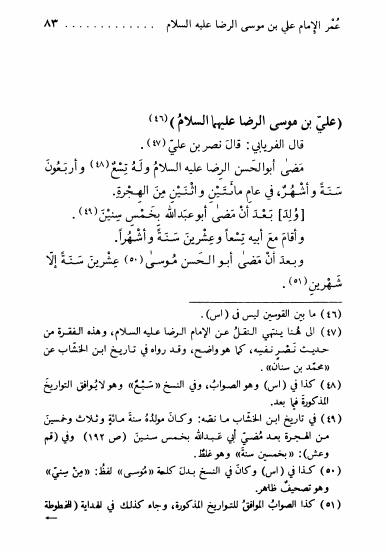 عُمْر الإمام علي بن موسى الرضا عليه السلام . . . . . . . . . . . . . ٨٣
(عليّ بن موسى الرضا عليهما السلامُ) (٤٦)
قال الفريابي: قالَ نصر بن عليّ (٤٧).
مَضىٰ أبوالحَسن الرِضا عليه السلامُ وَلَهُ تِسْعٌ (٤٨) وأربَعُونَ
سَنَةً وأشهُرٌ، في عامِ مائتَيْنِ واثْنَيْنِ مِنَ الهِجْرةِ.
[وُلِدَ] بَعْدَ أنْ مَضىٰ أبوعبدالله بِخَمْسِ سِنِيْنَ (٤٩).
وأقامَ مَعَ أبيه تِسْعاً وعِشرينَ سَنَةً وأشْهُراً.
وبعدَ أنْ مَضىٰ أبو الحَسن مُوسىٰ (٥٠) عِشرينَ سَنَةً إلّا
شَهْرَينِ (٥١).
(٤٦) ما بين القوسين ليس في (اس).
(٤٧) الى هُنا ينتهي النقلُ عن الإمام الرضا عليه السلام، وهذه الفقرة من
حديث نَصْرٍ نفسِه، كما هو واضح، وقد رواه في تاريخ ابن الخشّاب عن
«محمّد بن سنان».
(٤٨) كذا في (اس) وهو الصوابُ، وفي النسخ «سَبْعٌ» وهو لايُوافق التواريخَ
المذكورة فيما بعد.
(٤٩) في تاريخ ابن الخشّاب ما نصّه: وكانَ مولدُهُ سنةَ مائةٍ وثلاث وخمسينَ
من الهجرة بعد مُضيّ أبي عبدالله بخمس سنين (ص ١٩٢) وفي (قم
وعش): «بخمسين سنة» وهو غلطٌ.
(٥٠) كذا في (اس) وكانَ في النسخ بدل كلمة «مُوسى» لفظُ: «مِنْ سِنيّ»
وهو تصحيفٌ ظاهر.
(٥١) كذا الصوابُ الموافقُ للتواريخ المذكورة، وجاء كذلك في الهداية (المخطوطة